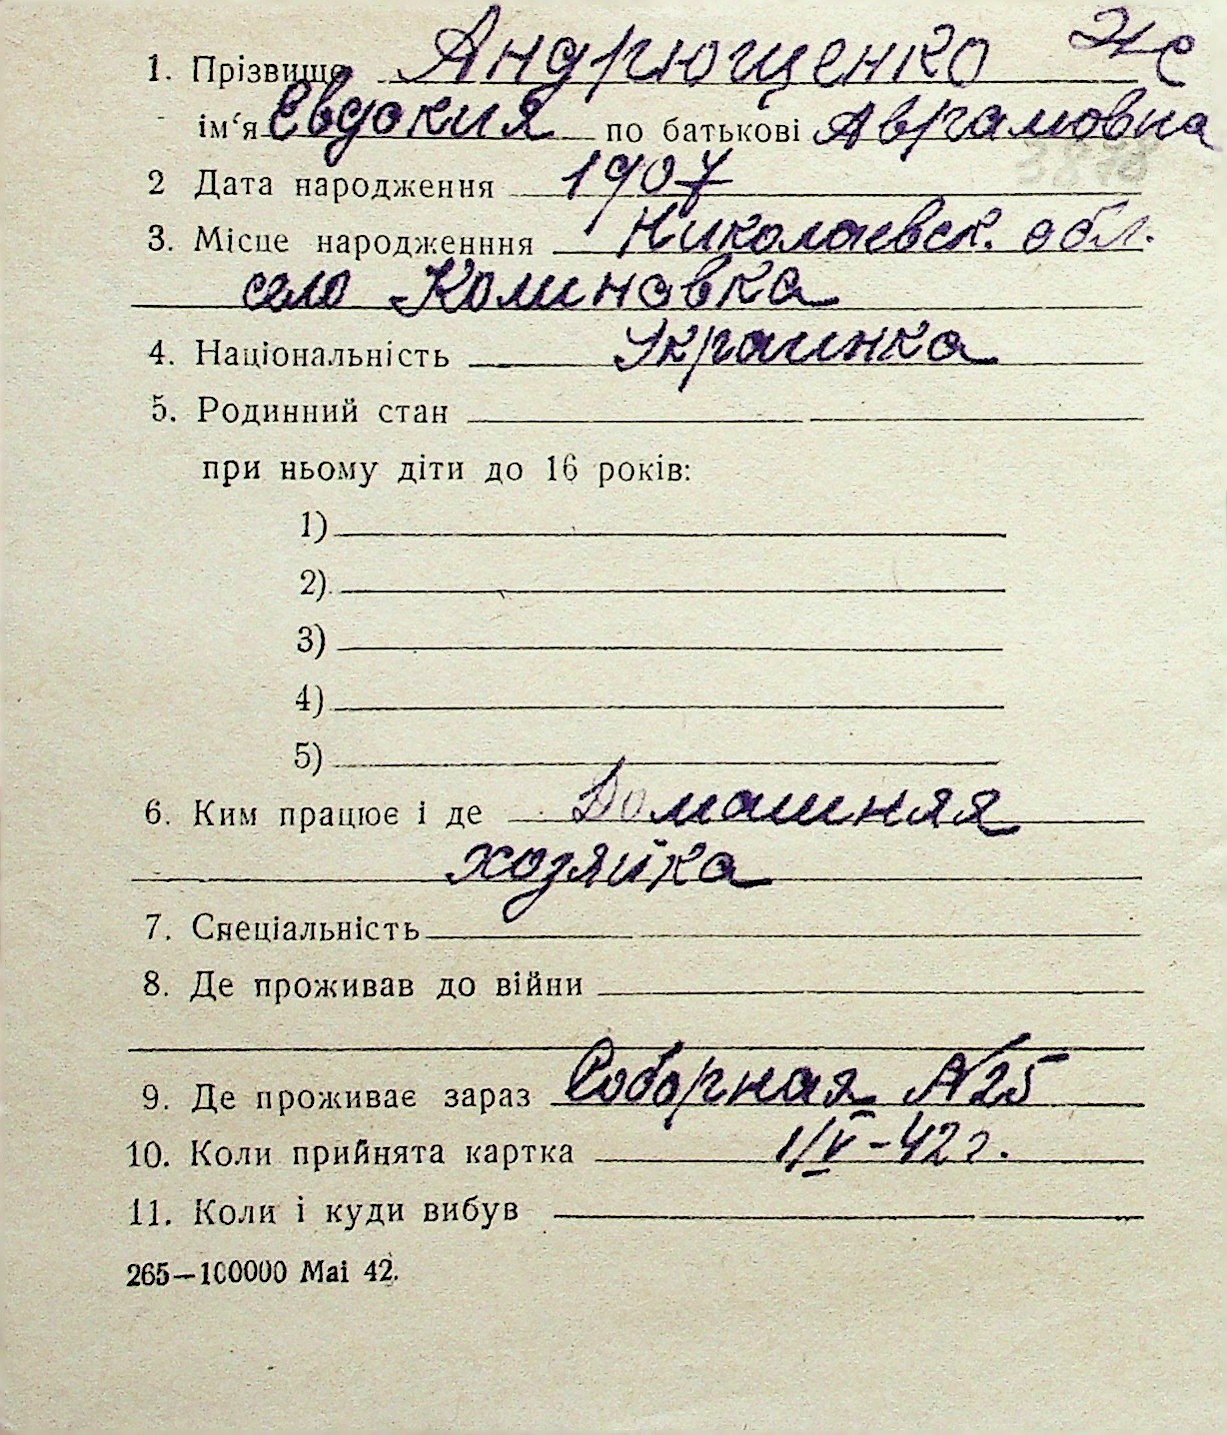 1. Прізвище Андрющенко Же
ім‘я Евдокия по батькові Аврамовна
3878
2 Дата народження 1907
3. Місце народженння Николаевск. обл.
село Колиновка
4. Національність Украинка
5. Родинний стан
при ньому діти до 16 років:
1)
2)
3)
4)
5)
6. Ким працює і де Домашняя
хозяйка
7. Спеціальність
8. Де проживав до війни
9. Де проживає зараз Соборная №25
10. Коли прийнята картка 1/V-42 г.
11. Коли і куди вибув
265—100000 Mai 42.